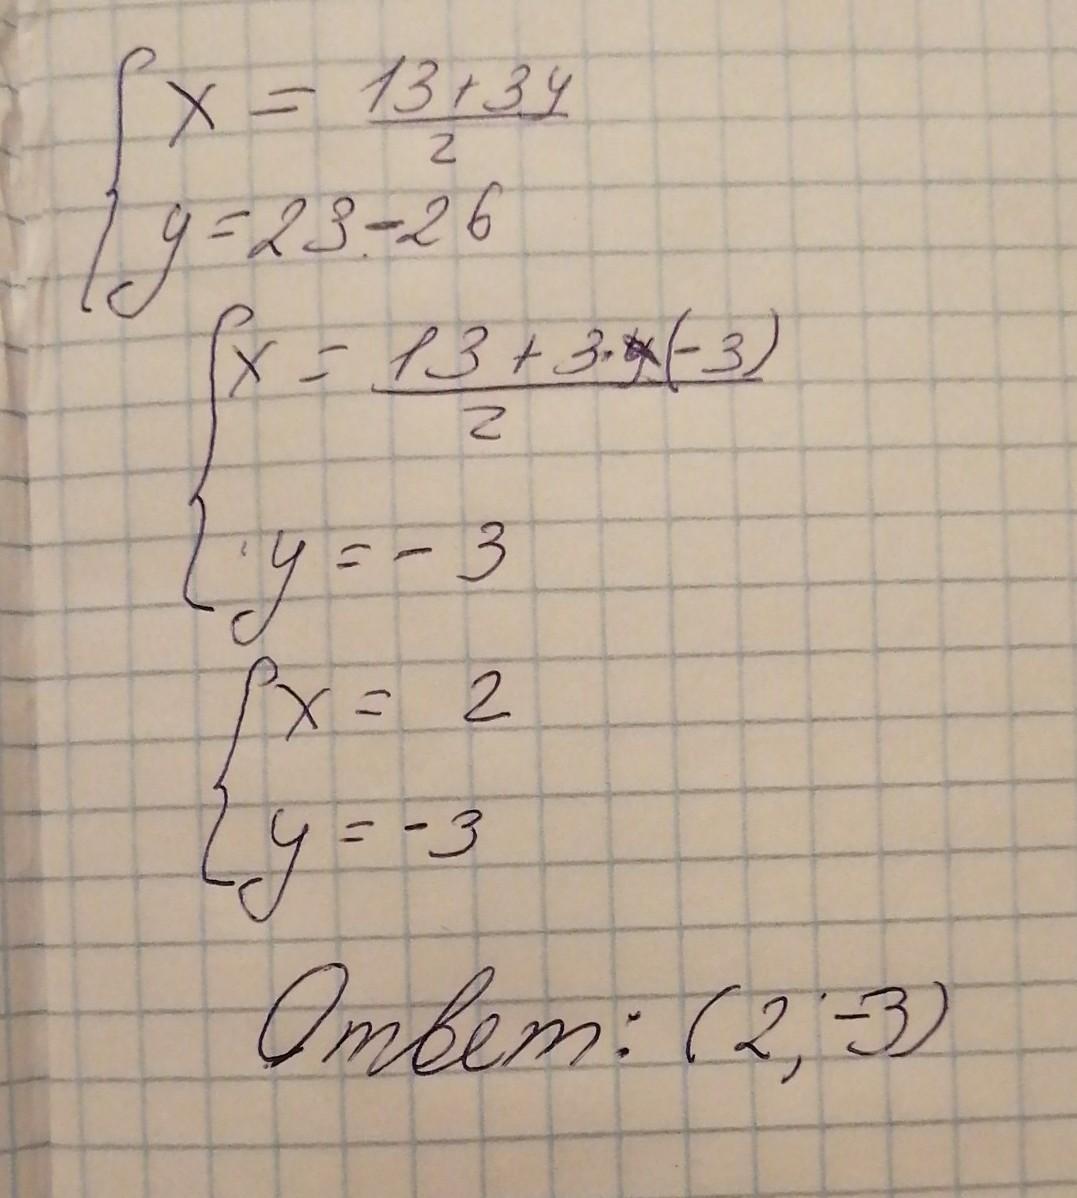 x = 13+3y
2
y = 23 - 26
x = 13 + 3·(-3)
2
y = - 3
x = 2
y = -3
Ответ: (2, -3)